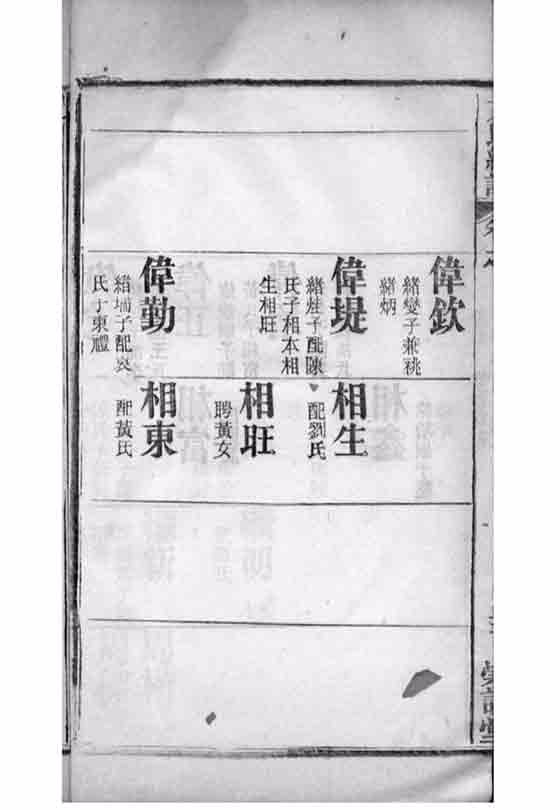 偉欽
緒燮子兼祧
緒炳
偉堤
緒烓子配陳
氏子相本相
生相旺
偉勤
緒埔子配炎
氏子東禮
相生
配劉氏
相旺
聘黃女
相東
配黃氏